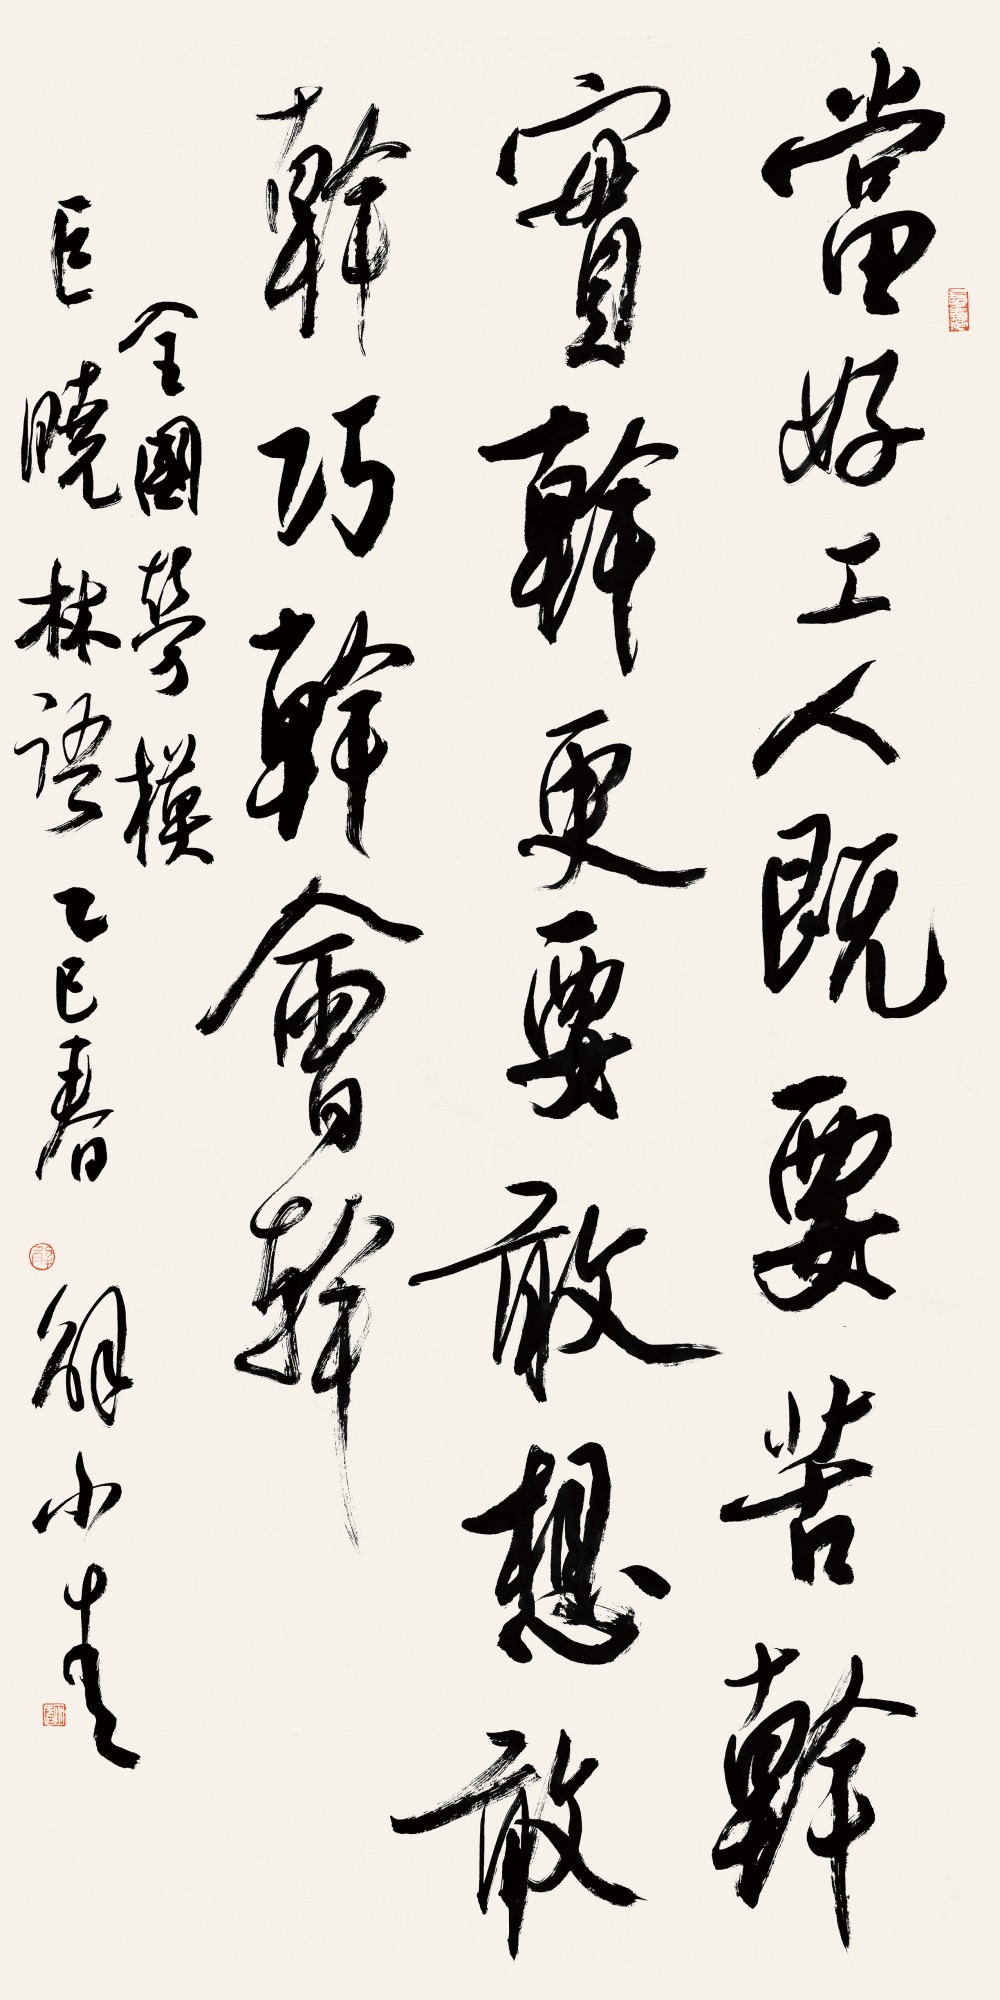 當好工人既要苦幹
實幹更要敢想敢
幹巧幹會幹
全國勞模
巨曉林語乙巳春
解小青